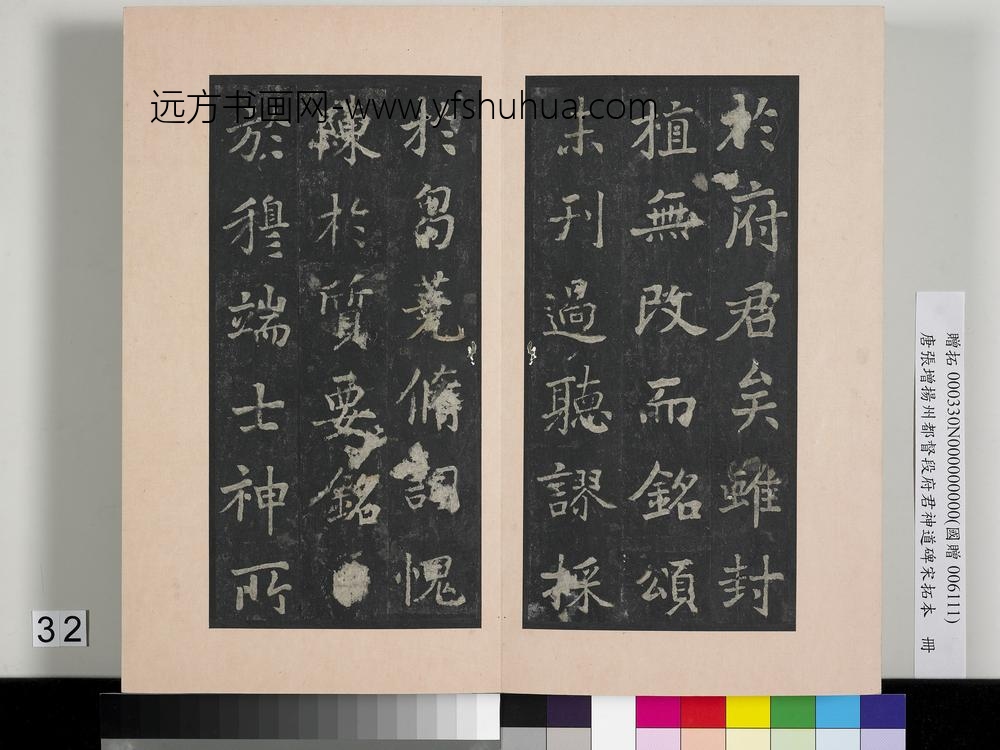 於府君矣雖封
植無改而銘頌
未刊過聽謬採
於芻蕘脩詞愧
陳於質要銘
於穆端士神所
远方书画网-www.yfshuhua.com
贈拓 000330N000000000(國贈 006111)
唐張增揚州都督段府君神道碑宋拓本 冊
32